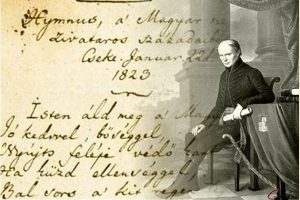 Hymnus, a' Magyar ne
zivataros századaib
Cseke. Januar. 22d.
1823
Isten áld meg a' Magy
Jó kedvvel, bőséggel
Nyújts feléje védő kar
Ha küzd ellenséggel
Bal sors a' kit régen